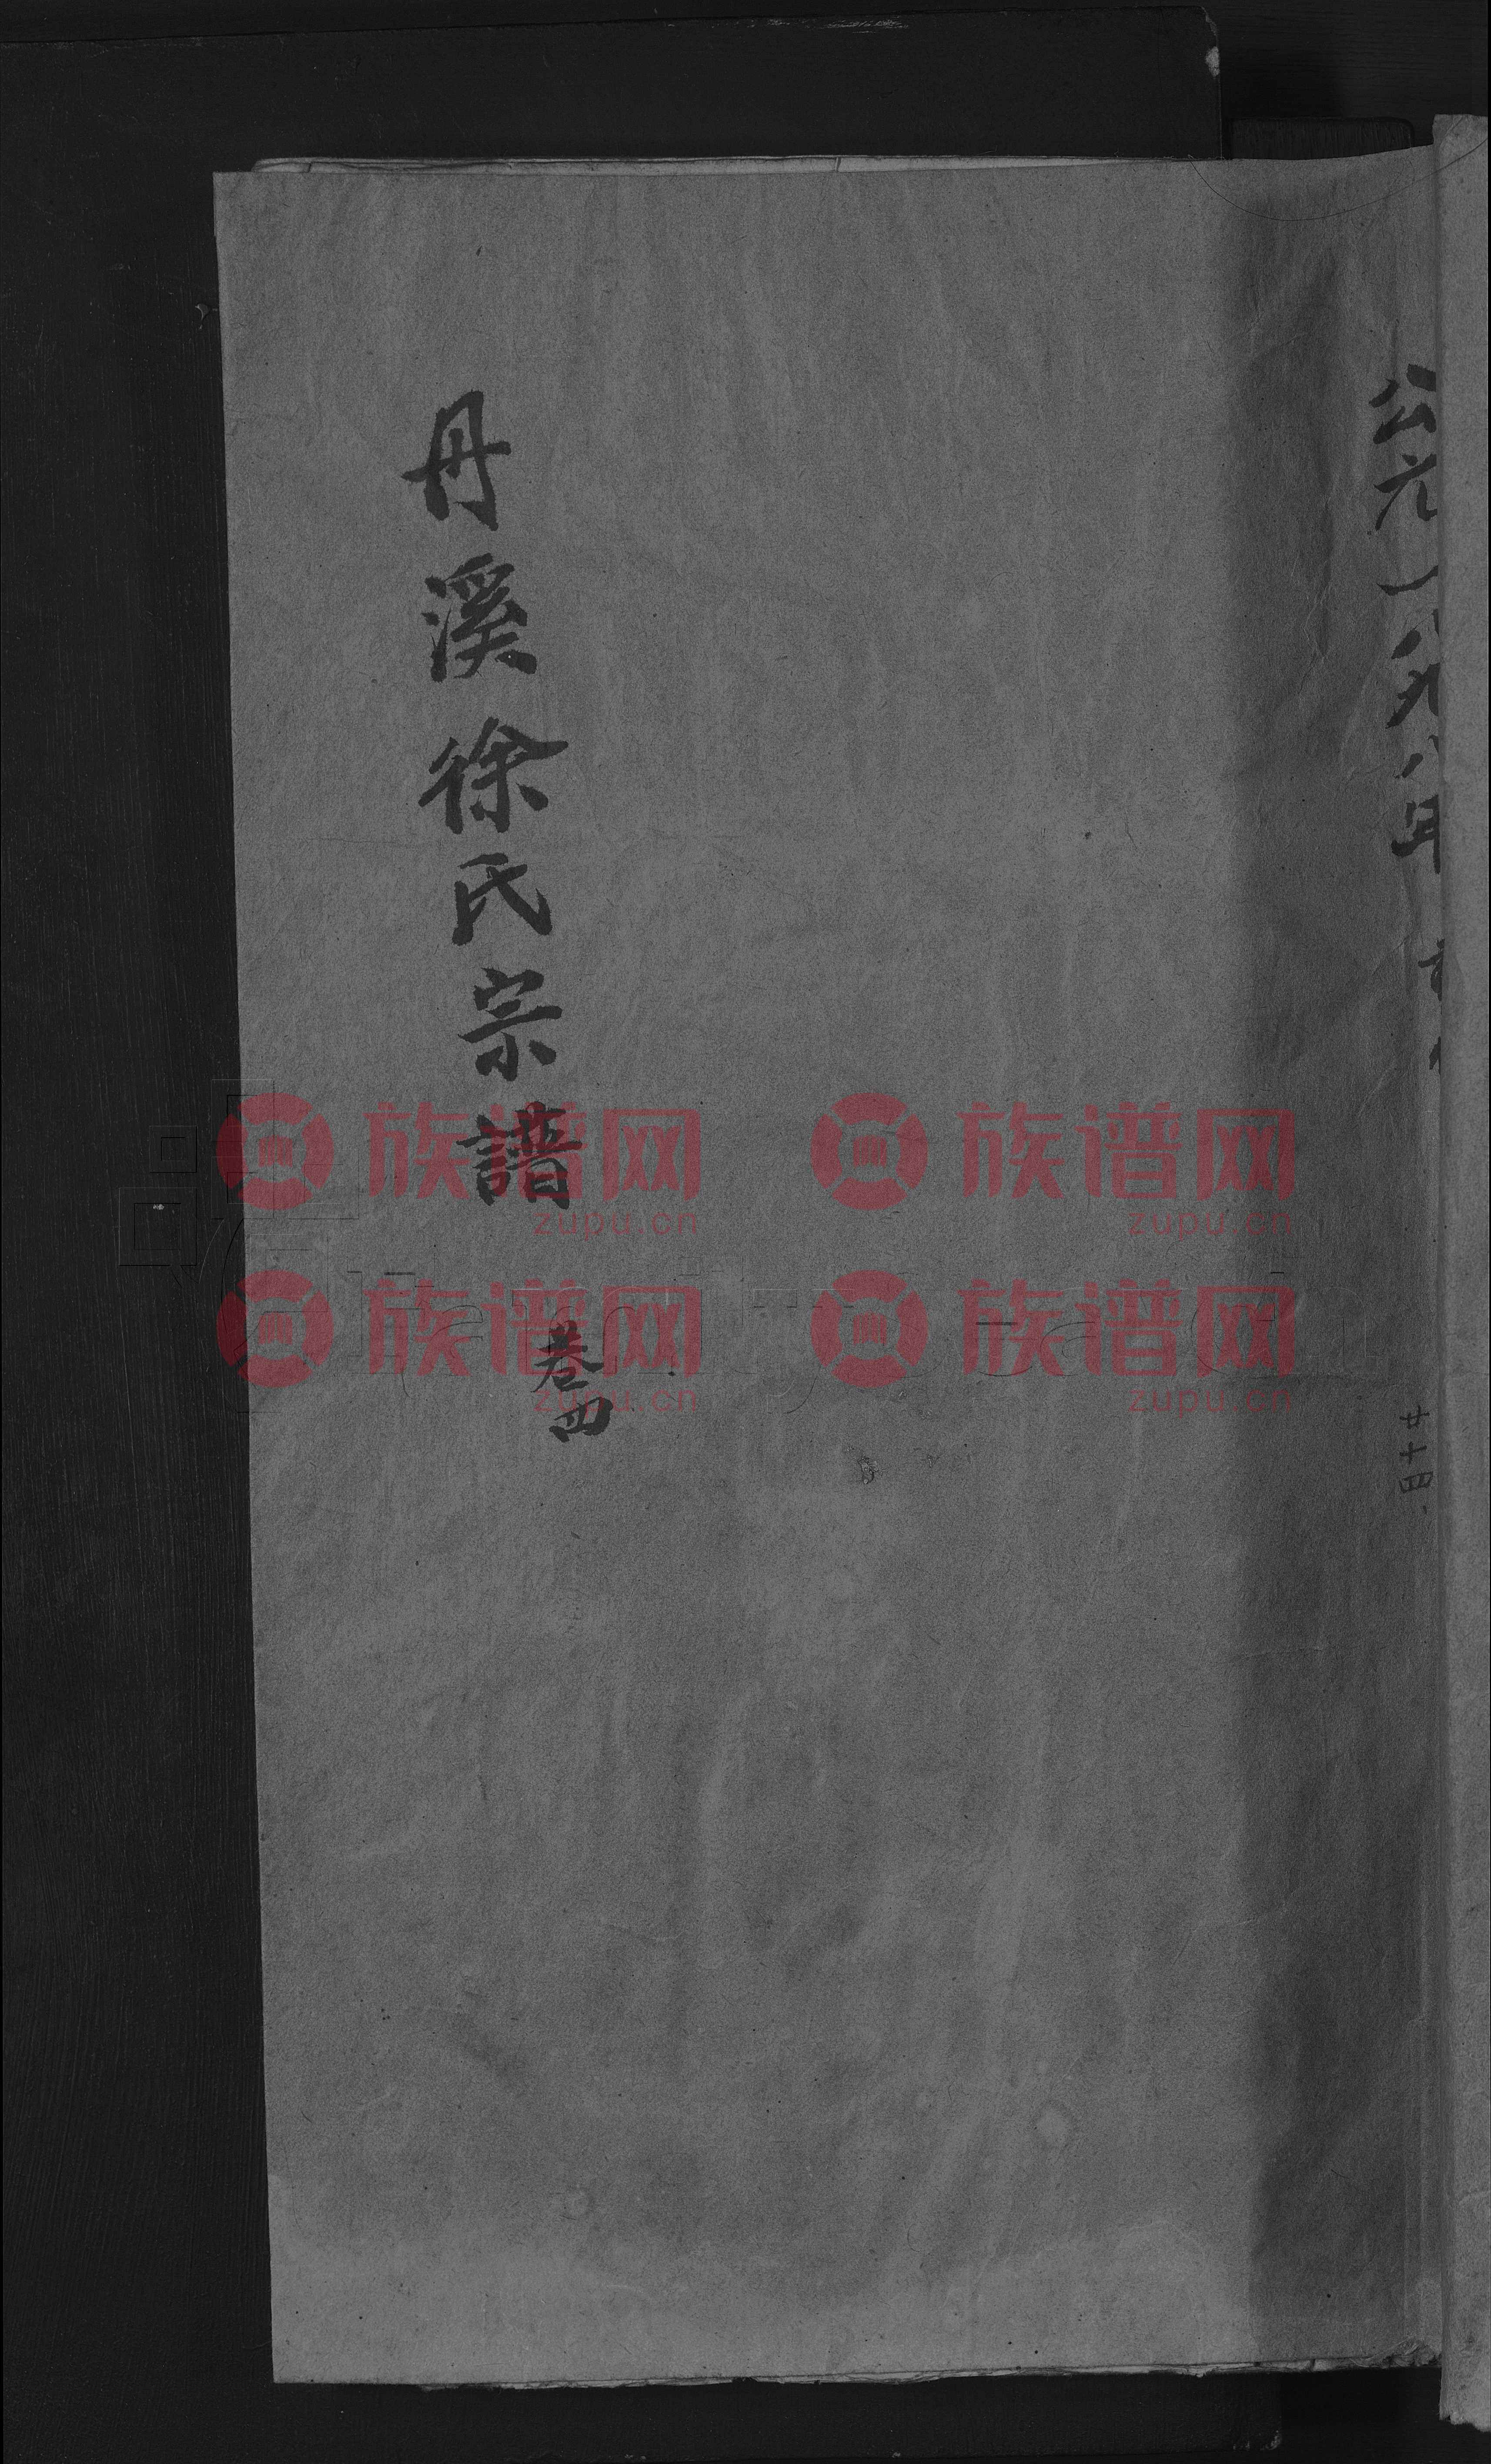 公元一
廿十日
丹溪徐氏宗譜
卷四
族谱网 族谱网
zupu.cn zupu.cn
族谱网 族谱网
zupu.cn zupu.cn